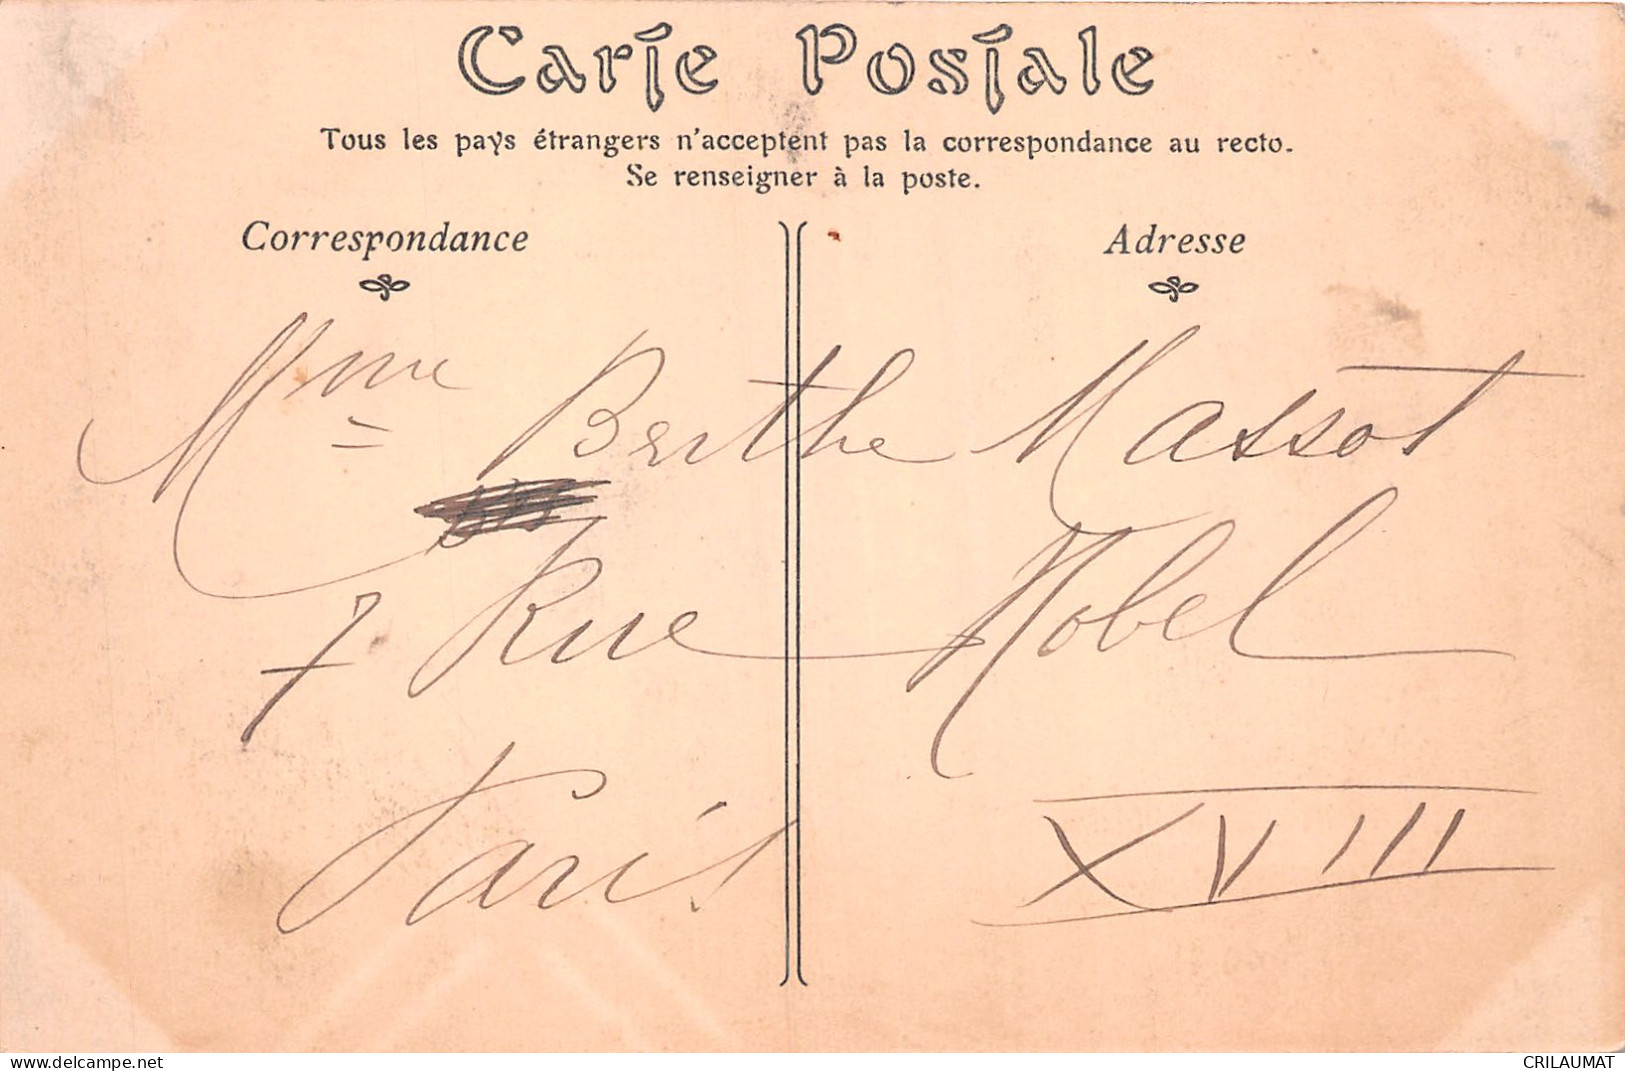 Carte Postale
Tous les pays étrangers n'acceptent pas la correspondance au recto.
Se renseigner à la poste.
Correspondance
Adresse
Mme Berthe Massot
7 Rue Nobel
Paris XVIII
delcampe.net
CRILAUMAT